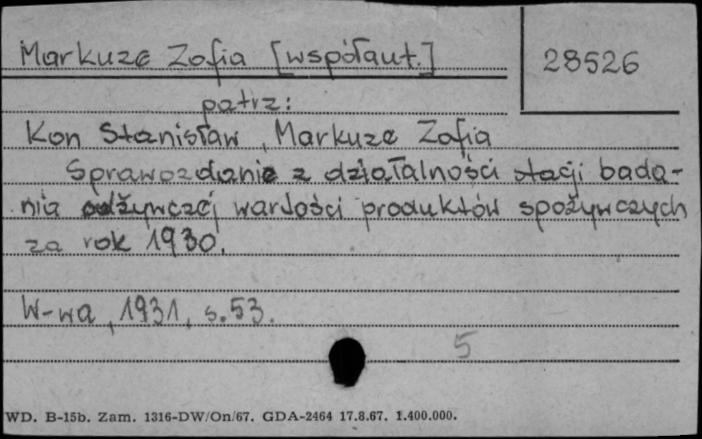 Markuze Zofia [współaut.]
28526
patrz:
Kon Stanisław, Markuze Zofia
Sprawozdanie z działalności stacji bada-
nia odżywczej wartości produktów spożywczych
za rok 1930.
W-wa, 1931, s.53.
5
WD. B-15b. Zam. 1316-DW/On/67. GDA-2464 17.8.67. 1.400.000.